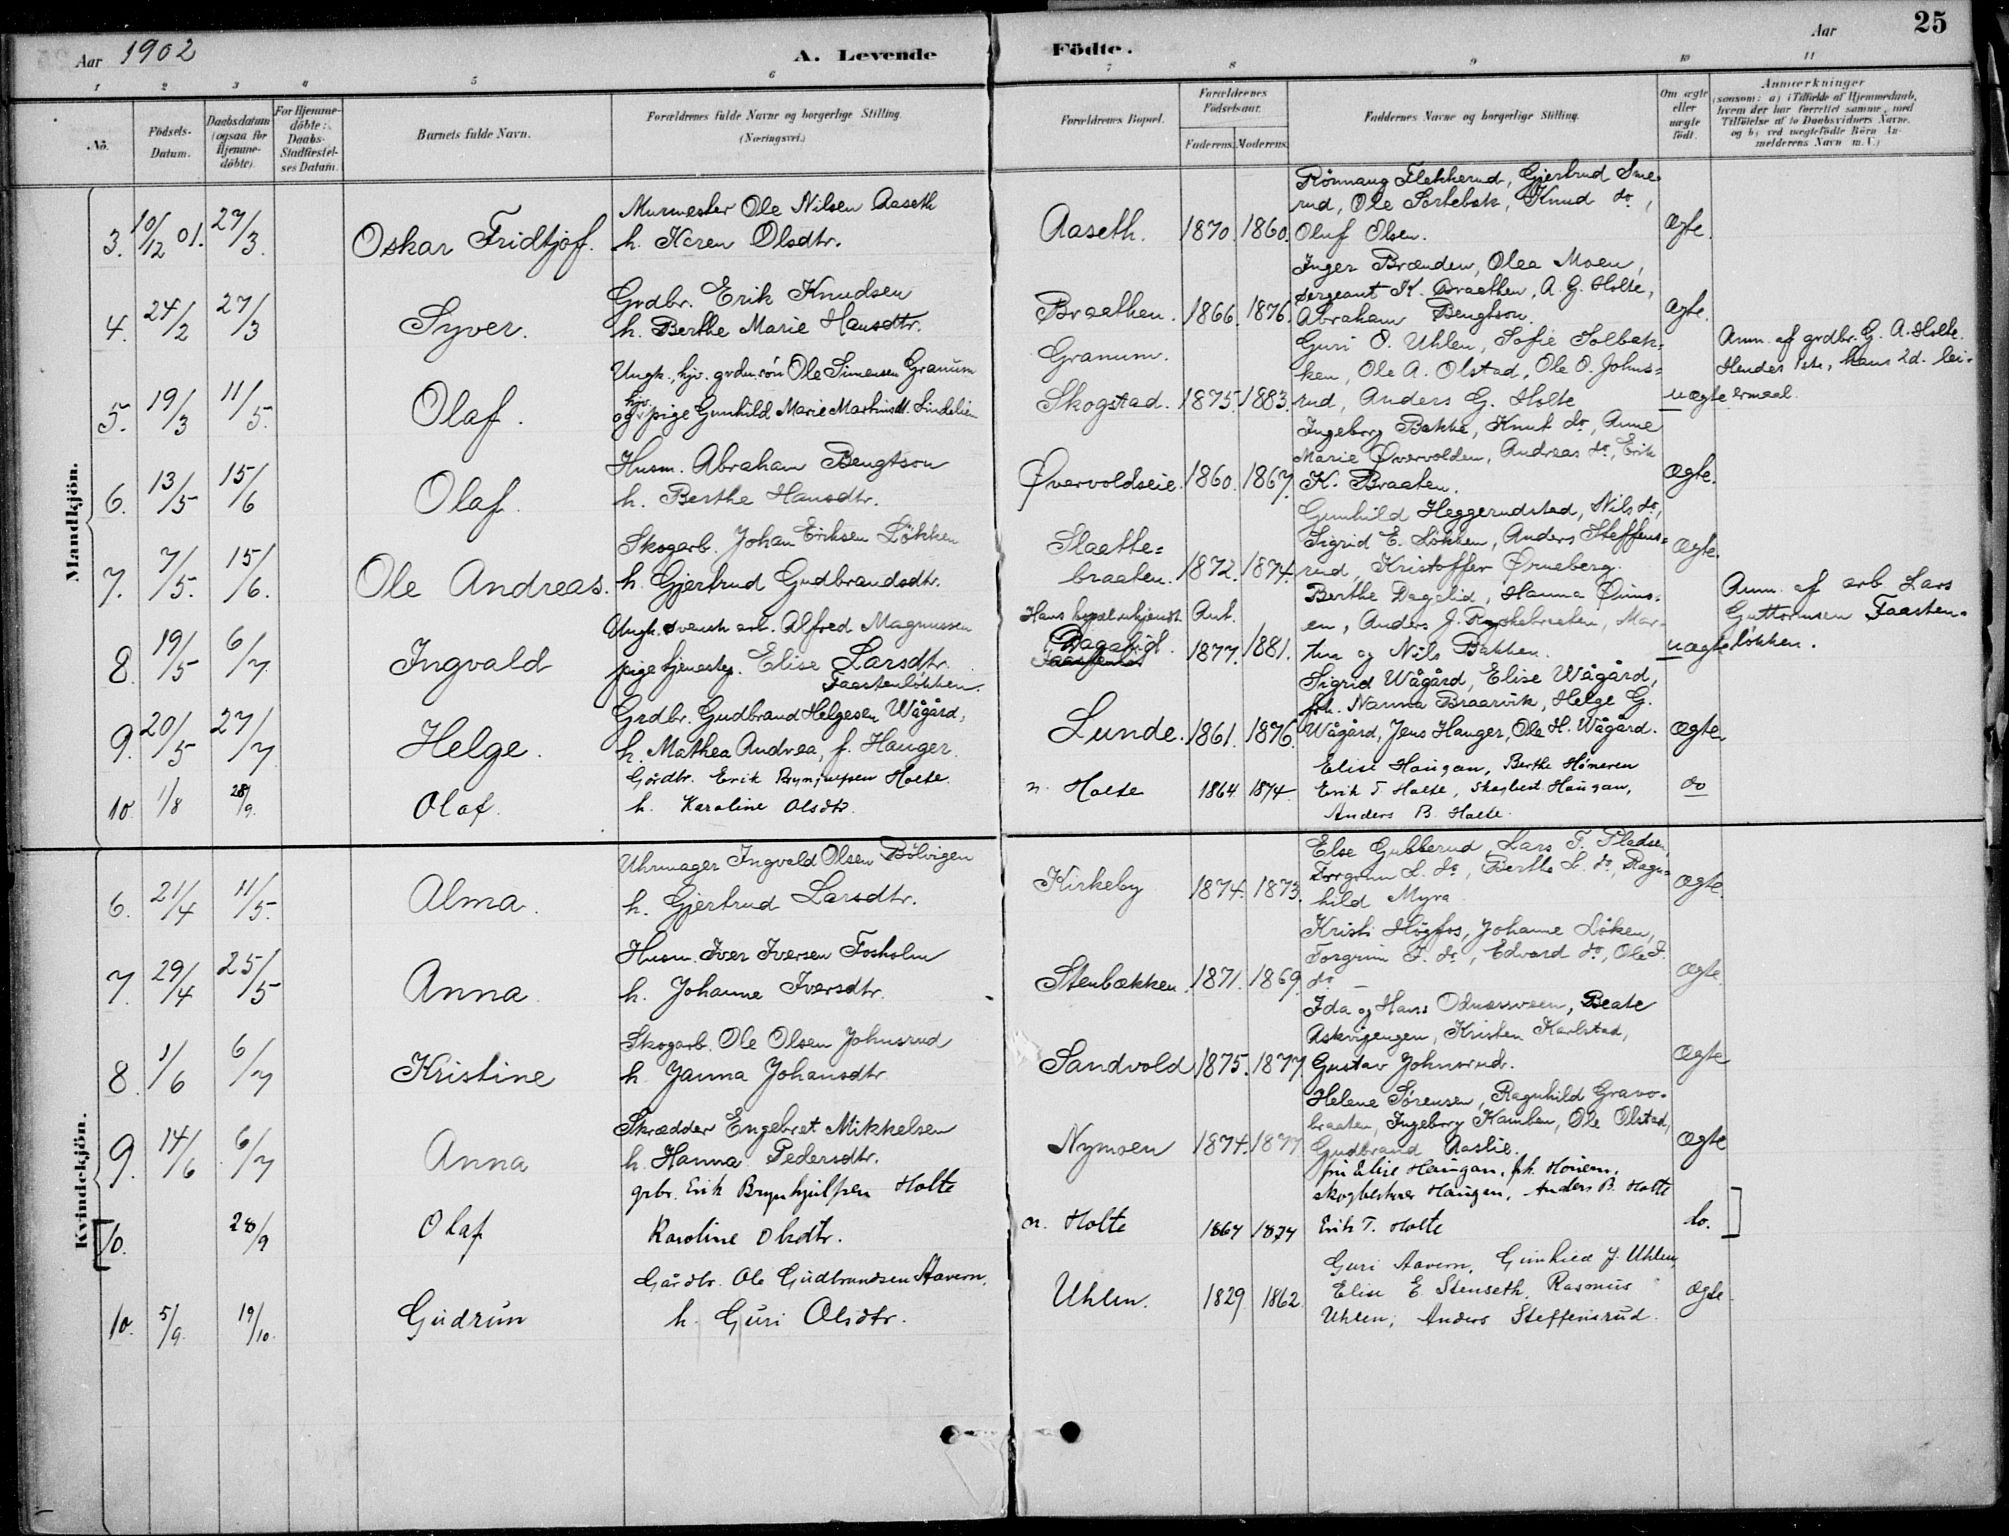 Aar 1902
A. Levende Födte.
Aar
25
1 2 3 4 5 6 7 8 9 10 11
No.
Födsels-Datum.
Daabsdatum (ogsaa for Hjemmedöbte).
For Hjemmedöbte: Daabs-Stadfæstelses Datum.
Barnets fulde Navn.
Forældrenes fulde Navne og borgerlige Stilling. (Næringsvei.)
Forældrenes Bopæl.
Forældrenes Födselsaar.
Faderens. Moderens.
Faddernes Navne og borgerlige Stilling.
Om ægte eller uægte födt.
Anmærkninger
(saasom: a) i Tilfælde af Hjemmedaab, hvem der har forrettet samme, med Tilföielse af to Daabsvidners Navne, og b) ved uægtefödte Börn Anmelderens Navn m. V.)
Mandkjön.
3. 10/12 01. 27/3. Oskar Fridtjof.
Murmester Ole Nilsen Aaseth
h. Karen Olsdtr.
Aaseth. 1870. 1860.
Rönnaug Flekkerud, Gjertrud Sme-
rud, Ole Sortebæk, Knud do,
Oluf Olsen.
ægte.
4. 24/2 27/3 Syver.
Grdbr. Erik Knudsen
h. Berthe Marie Hansdtr.
Braathen. 1866. 1876.
Inger Brænden, Olea Moen,
sergeant K. Braathen, A. G. Holte,
Abraham Bengtson.
ægte.
5. 19/3 11/5. Olaf.
Ungk., hjv. grdm.sön Ole Simensen Granum
og hjv. pige Gunhild Marie Martinsdt. Lindelien
Granum.
Skogstad. 1875. 1883.
Guri O. Uhlen, Sofie Solbak-
ken, Ole A. Olstad, Ole O. Johns-
rud, Anders G. Holte
uægte
Anm. af grdbr. G. A. Holte.
Hendes 1ste, hans 2d. lei-
ermaal.
6. 13/5 15/6 Olaf.
Husm. Abraham Bengtson
h. Berthe Hansdtr.
Øvervoldseie. 1860. 1867.
Ingeborg Bakke, Knut do, Anne
Marie Øvervolden, Andreas do, Erik
K. Braaten.
ægte.
7. 7/5. 15/6. Ole Andreas.
Skogarb. Johan Eriksen Lökken
h. Gjertrud Gudbrandsdtr.
Slaette-
braaten. 1872. 1874.
Gunhild Heggerudstad, Nils do,
Sigrid E. Lökken, Anders Steffens-
rud, Kristoffer Ørneberg.
ægte.
8. 19/5 6/7. Ingvald
Ungk. svensk arb. Alfred Magnussen
pige tjenestep. Elise Larsdtr.
Faastenlökken.
Hans bopæl ukjendt
Dagalid. Ant. 1877. 1881.
Berthe Dagalid, Hanna Øims-
en, Anders J. Ryskebraaten, Mar-
tha og Nils Bakken.
uægte
Anm. af arb. Lars
Guttormsen Faasten-
lökken.
9. 20/5 27/7 Helge.
Grdbr. Gudbrand Helgesen Wågård,
h. Mathea Andrea, f. Hauger.
Lunde. 1861. 1876.
Sigrid Wågård, Elise Wågård,
frk. Nanna Braarvik, Helge G.
Wågård, Jens Hauger, Ole H. Wågård.
ægte.
10 1/8 28/9. Olaf.
Gårdbr. Erik Brynjulfsen Holte.
h. Karoline Olsdtr.
n. Holte 1864 1874
Elise Haugan, Berthe Hömeren
Erik T Holte, Skogbest. Haugan,
Anders B. Holte.
do
Kvindekjön.
6. 21/4 11/5. Alma.
Uhrmager Ingvald Olsen Bölvigen
h. Gjertrud Larsdtr.
Kirkeby 1874. 1873.
Else Gubberud, Lars T. Pladsen,
Torgrim L. do, Berthe L. do, Ragn-
hild Myra
ægte.
7. 29/4 25/5 Anna.
Husm. Iver Iversen Fosholm
h. Johanne Iversdtr.
Stenbækken. 1871. 1869.
Kristi Högfos, Johanne Löken,
Torgrim T. do, Edvard do, Ole T.
do. –
ægte.
8. 1/6 6/7 Kristine
Skogarb. Ole Olsen Johnsrud
h. Janna Johansdtr.
Sandvold 1875. 1877.
Ida og Hans Odnæsveen, Beate
Askvigengen, Kristen Karlstad,
Gustav Johnsrud.
ægte
9. 14/6 6/7 Anna
Skrædder Engebret Mikkelsen
h. Hanna Pedersdtr.
Nymoen 1874. 1877
Helene Sörensen, Ragnhild Gravo-
braaten, Ingeborg Kamben, Ole Olstad,
Gudbrand Aaslie.
ægte
[10. 28/9 Olaf
grbr. Erik Brynhjulfsen Holte
Karoline Olsdtr.
n. Holte 1864 1874
fru Elise Haugan, frk. Honem,
skogbestyrer Haugan, Anders B. Holte
Erik T. Holte
do.]
10. 5/9. 19/10. Gudrun
Gårdbr. Ole Gudbrandsen Aavern.
h. Guri Olsdtr.
Uhlen. 1829 1862
Guri Aavern, Gunhild J. Uhlen,
Elise E Stenseth, Rasmus
Uhlen, Anders Steffensrud.
ægte.